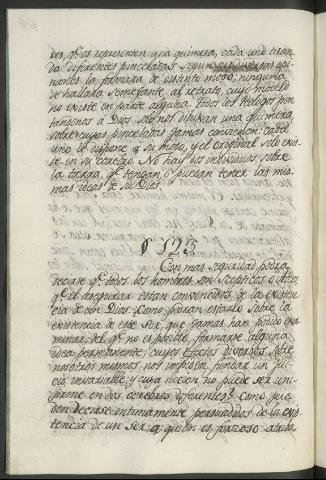 res, q.e os representen una quimera, cada uno tiran-
do diferentes pincelatas segun sus diversas opi-
niones la formara de distinto modo; ninguna
se hallara semejante al retrato, cuyo modelo
no existe en parte alguna. Todos los Teologos pin-
tandonos a Dios no nos dibujan una quimera,
sobre cuyas pincelatas jamas convienen: cada
uno le dispone a su modo, y el original solo exis-
te en su cerebro. No hay dos individuos sobre
la tierra, q.e tengan, o puedan tener las mis-
mas ideas de su Dios.
§ 123
Con mas seguridad podra
decirse q.e todos los hombres son Scepticos o Ateos,
q.e el asegurar estan convencidos de la existen-
cia de un Dios. Como podran estarlo sobre la
existencia de este ser, que jamas han podido exa-
minar, del q.e no es posible formarse alguna
idea permanente, cuyos efectos diversos sobre
nosotros mismos nos impiden fundar un jui-
cio invariable, y cuya nocion no puede ser uni-
forme en dos cerebros diferentes? Como pue-
den decirse intimamente persuadidos de la exis-
tencia de un Ser, a quien es forzoso atribu-